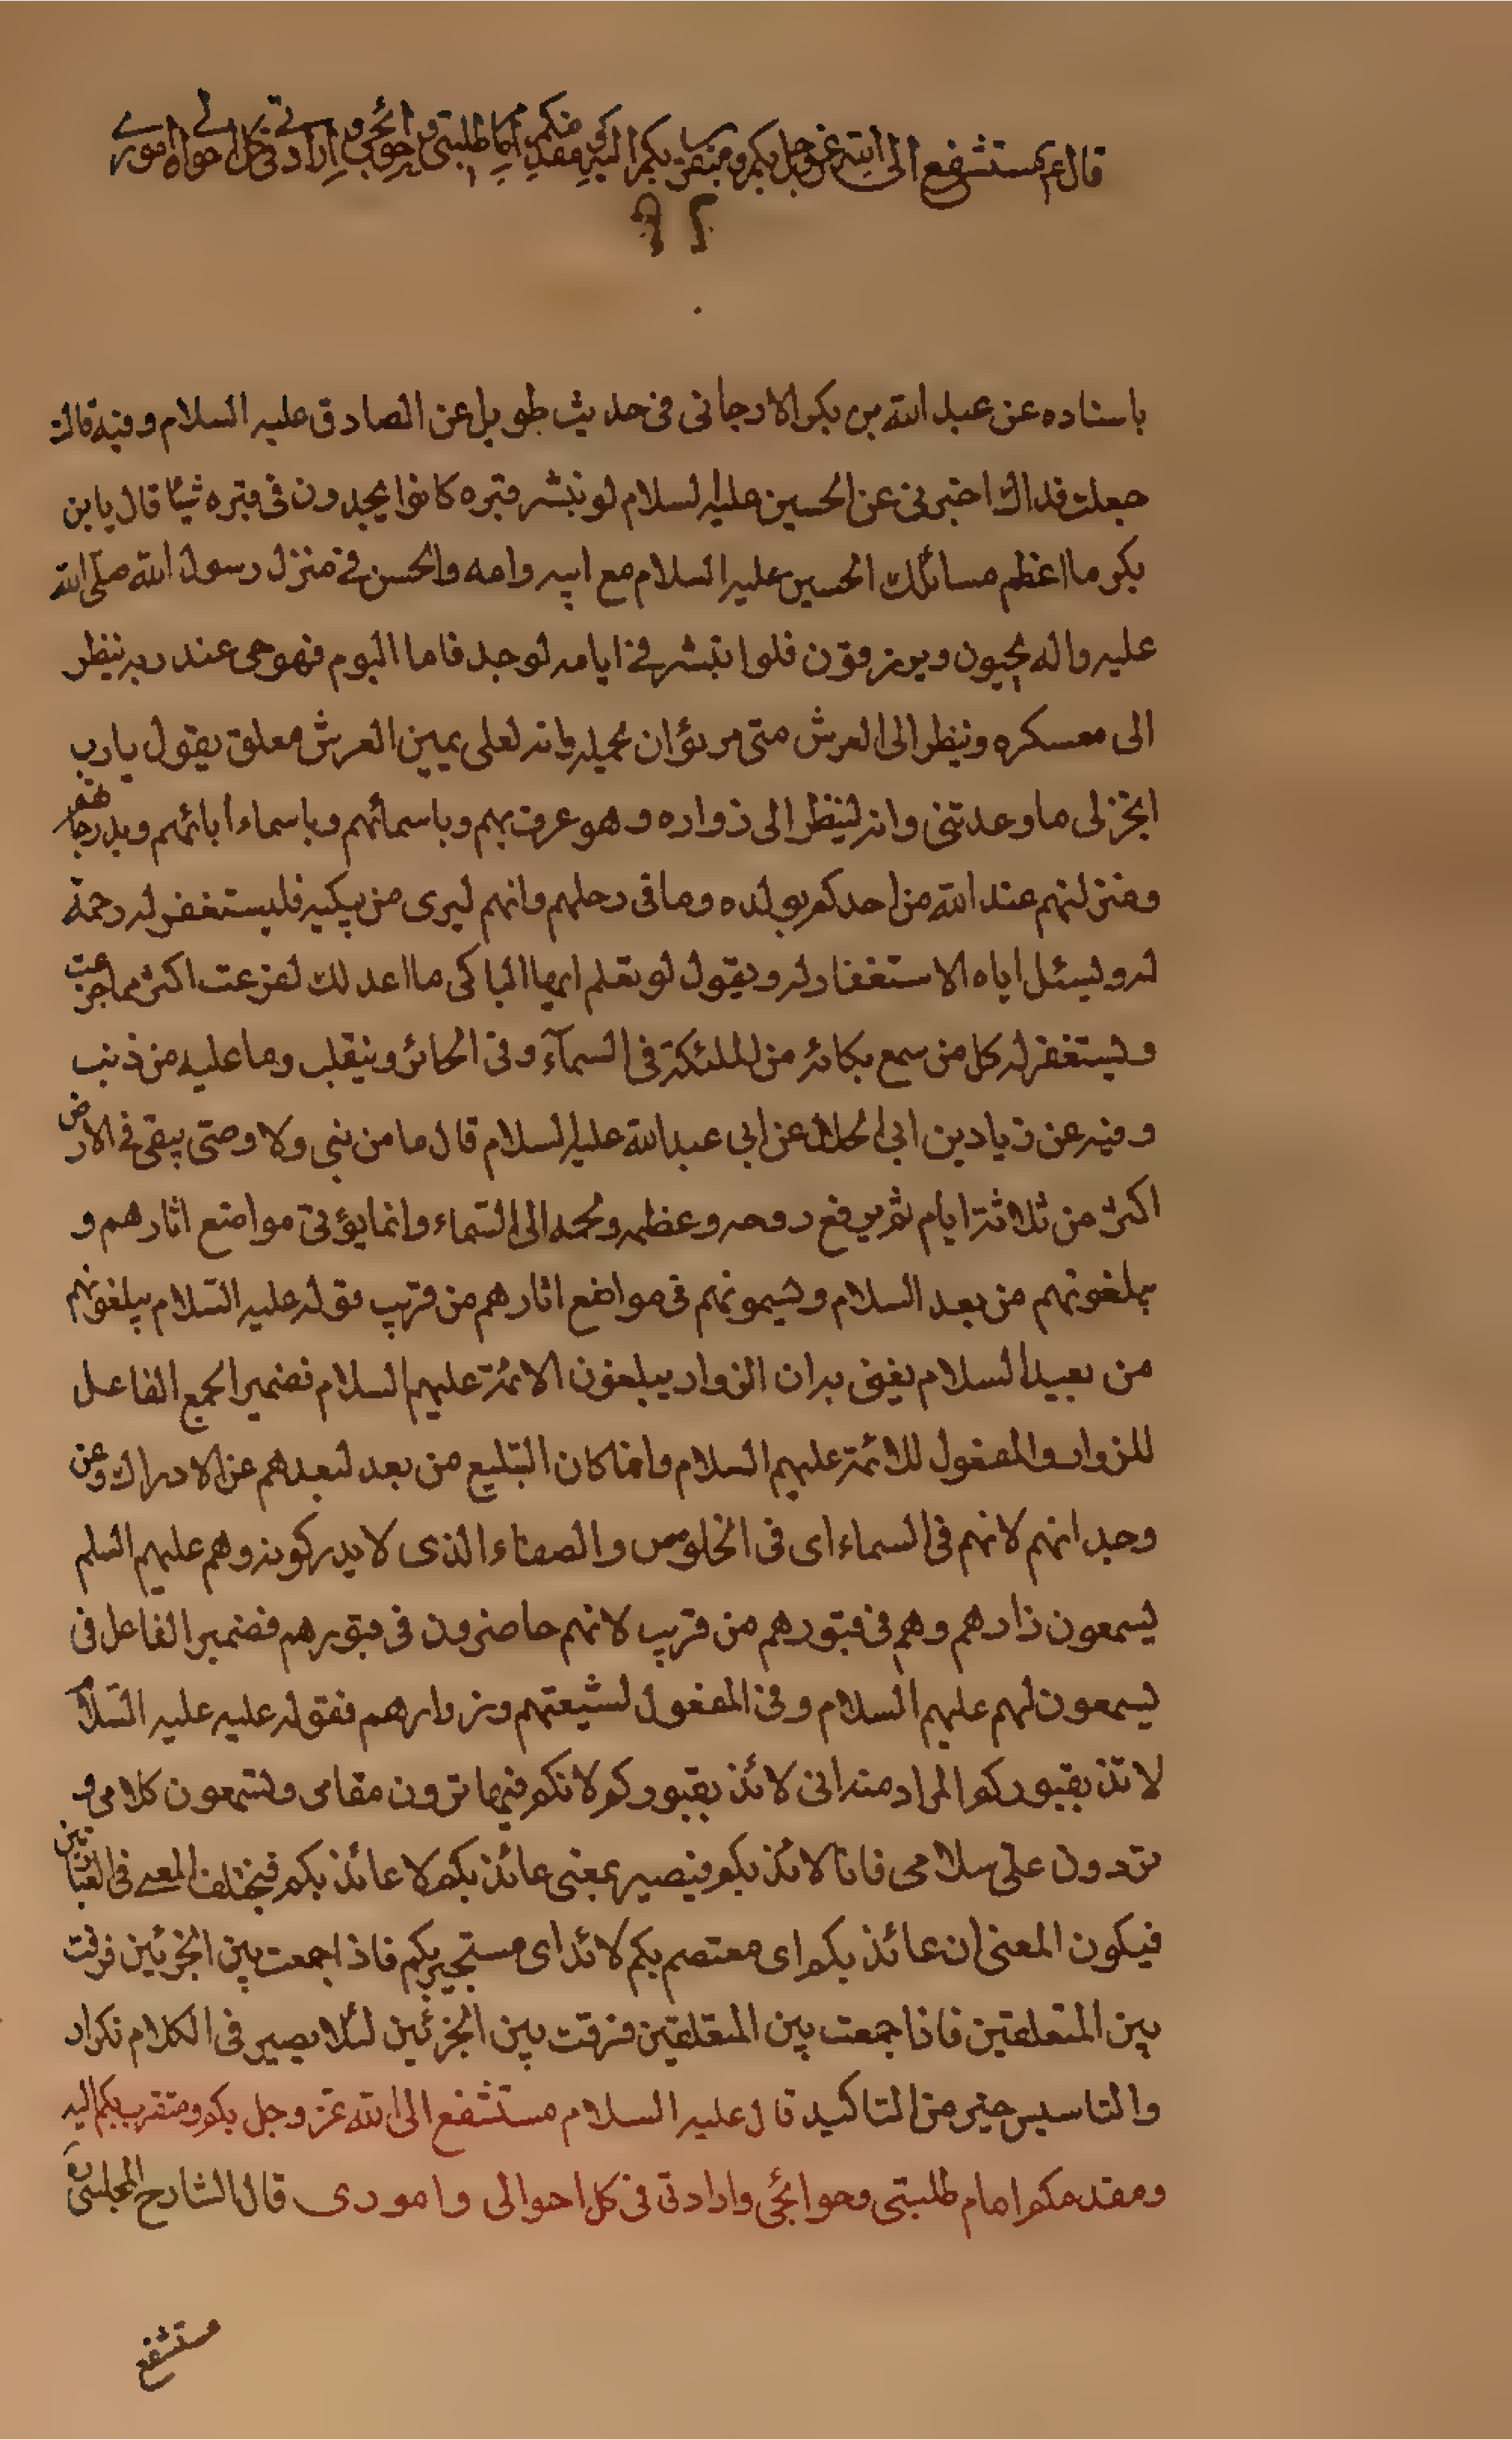 قال ع مستشفع الى الله عز وجل بكم ومتقرب بكم اليه ومقدمكم امام طلبتى وحوائجى وارادتى فى كل احوالى وامورى
باسناده عن عبد الله بن بكر الارجانى فى حديث طويل عن الصادق عليه السلام وفيه قالت
جعلت فداك اخبرنى عن الحسين عليه السلام لو نبش قبره كانوا يجدون فى قبره شيئا قال يابن
بكر ما اعظم مسائلك الحسين عليه السلام مع ابيه وامه والحسن فى منزل رسول الله صلى الله
عليه واله يحيون ويرزقون فلوا نبش فى ايامه لوجد فاما اليوم فهو حى عند ربه ينظر
الى معسكره وينظر الى العرش متى مر يؤان بحمله وانه لعلى يمين العرش معلق يقول يارب
انجز لى ما وعدتنى وانه لينظر الى زواره وهو عرف بهم وباسمائهم وباسماء ابائهم وبدرجاتهم
ومنزلتهم عند الله من احدكم بولده وما فى رحلهم وانهم ليرى من يبكيه فليستغفر له رحمة
له وليسئل اياه الاستغفار له ويقول لو تعلم ايها الباكى ما اعد لك لفزعت اكثر مما جزعت
وليستغفر له كل من سمع بكائه من الملئكة فى السمآء وفى الحائر وينقلب وما عليه من ذنب
وفيه عن زياد بن ابى الحلال عن ابى عبد الله عليه السلام قال ما من نبى ولا وصى يبقى فى الارض
اكثر من ثلاثة ايام ثم يرفع روحه وعظمه ولحمه الى السماء وانما يؤتى مواضع اثارهم و
يبلغونهم من بعد السلام ويسمونهم فى مواضع اثارهم من قريب فقوله عليه السلام يبلغونهم
من بعيد السلام يعنى به ان الزوار يبلغون الائمة عليهم السلام فضمير الجمع الفاعل
للزوار والمفعول للائمة عليهم السلام وانما كان التبليع من بعد لبعدهم عن الادراك وعن
وجدانهم لانهم فى السماء اى فى الخلوص والصفاء الذى لا يدركونه وهم عليهم السلم
يسمعون زارهم وهم فى قبورهم من قريب لانهم حاضرون فى قبورهم فضمير الفاعل فى
يسمعون لهم عليهم السلام وفى المفعول لشيعتهم وزوارهم فقوله عليه عليه السلام
لائذ بقبوركم المراد منه انى لائذ بقبوركم لانكم فيها ترون مقامى وتسمعون كلامى و
تردون على سلامى فانا لائذ بكم فيصير بمعنى عائذ بكم لا عائذ بكم فيختلف المعنى فى العبارتين
فيكون المعنى ان عائذ بكم اى معتصم بكم لائذ اى مستجير بكم فاذا جمعت بين الجزئين فرقت
بين المتعلقين فاذا جمعت بين المتعلقين فرقت بين الجزئين لئلا يصير فى الكلام تكرار
والتاسيس خير من التاكيد قال عليه السلام مستشفع الى الله عز وجل بكم ومتقرب بكم اليه
ومقدمكم امام طلبتى وحوائجى وارادتى فى كل احوالى وامورى قال الشارح المجلسى ره
مستشفع